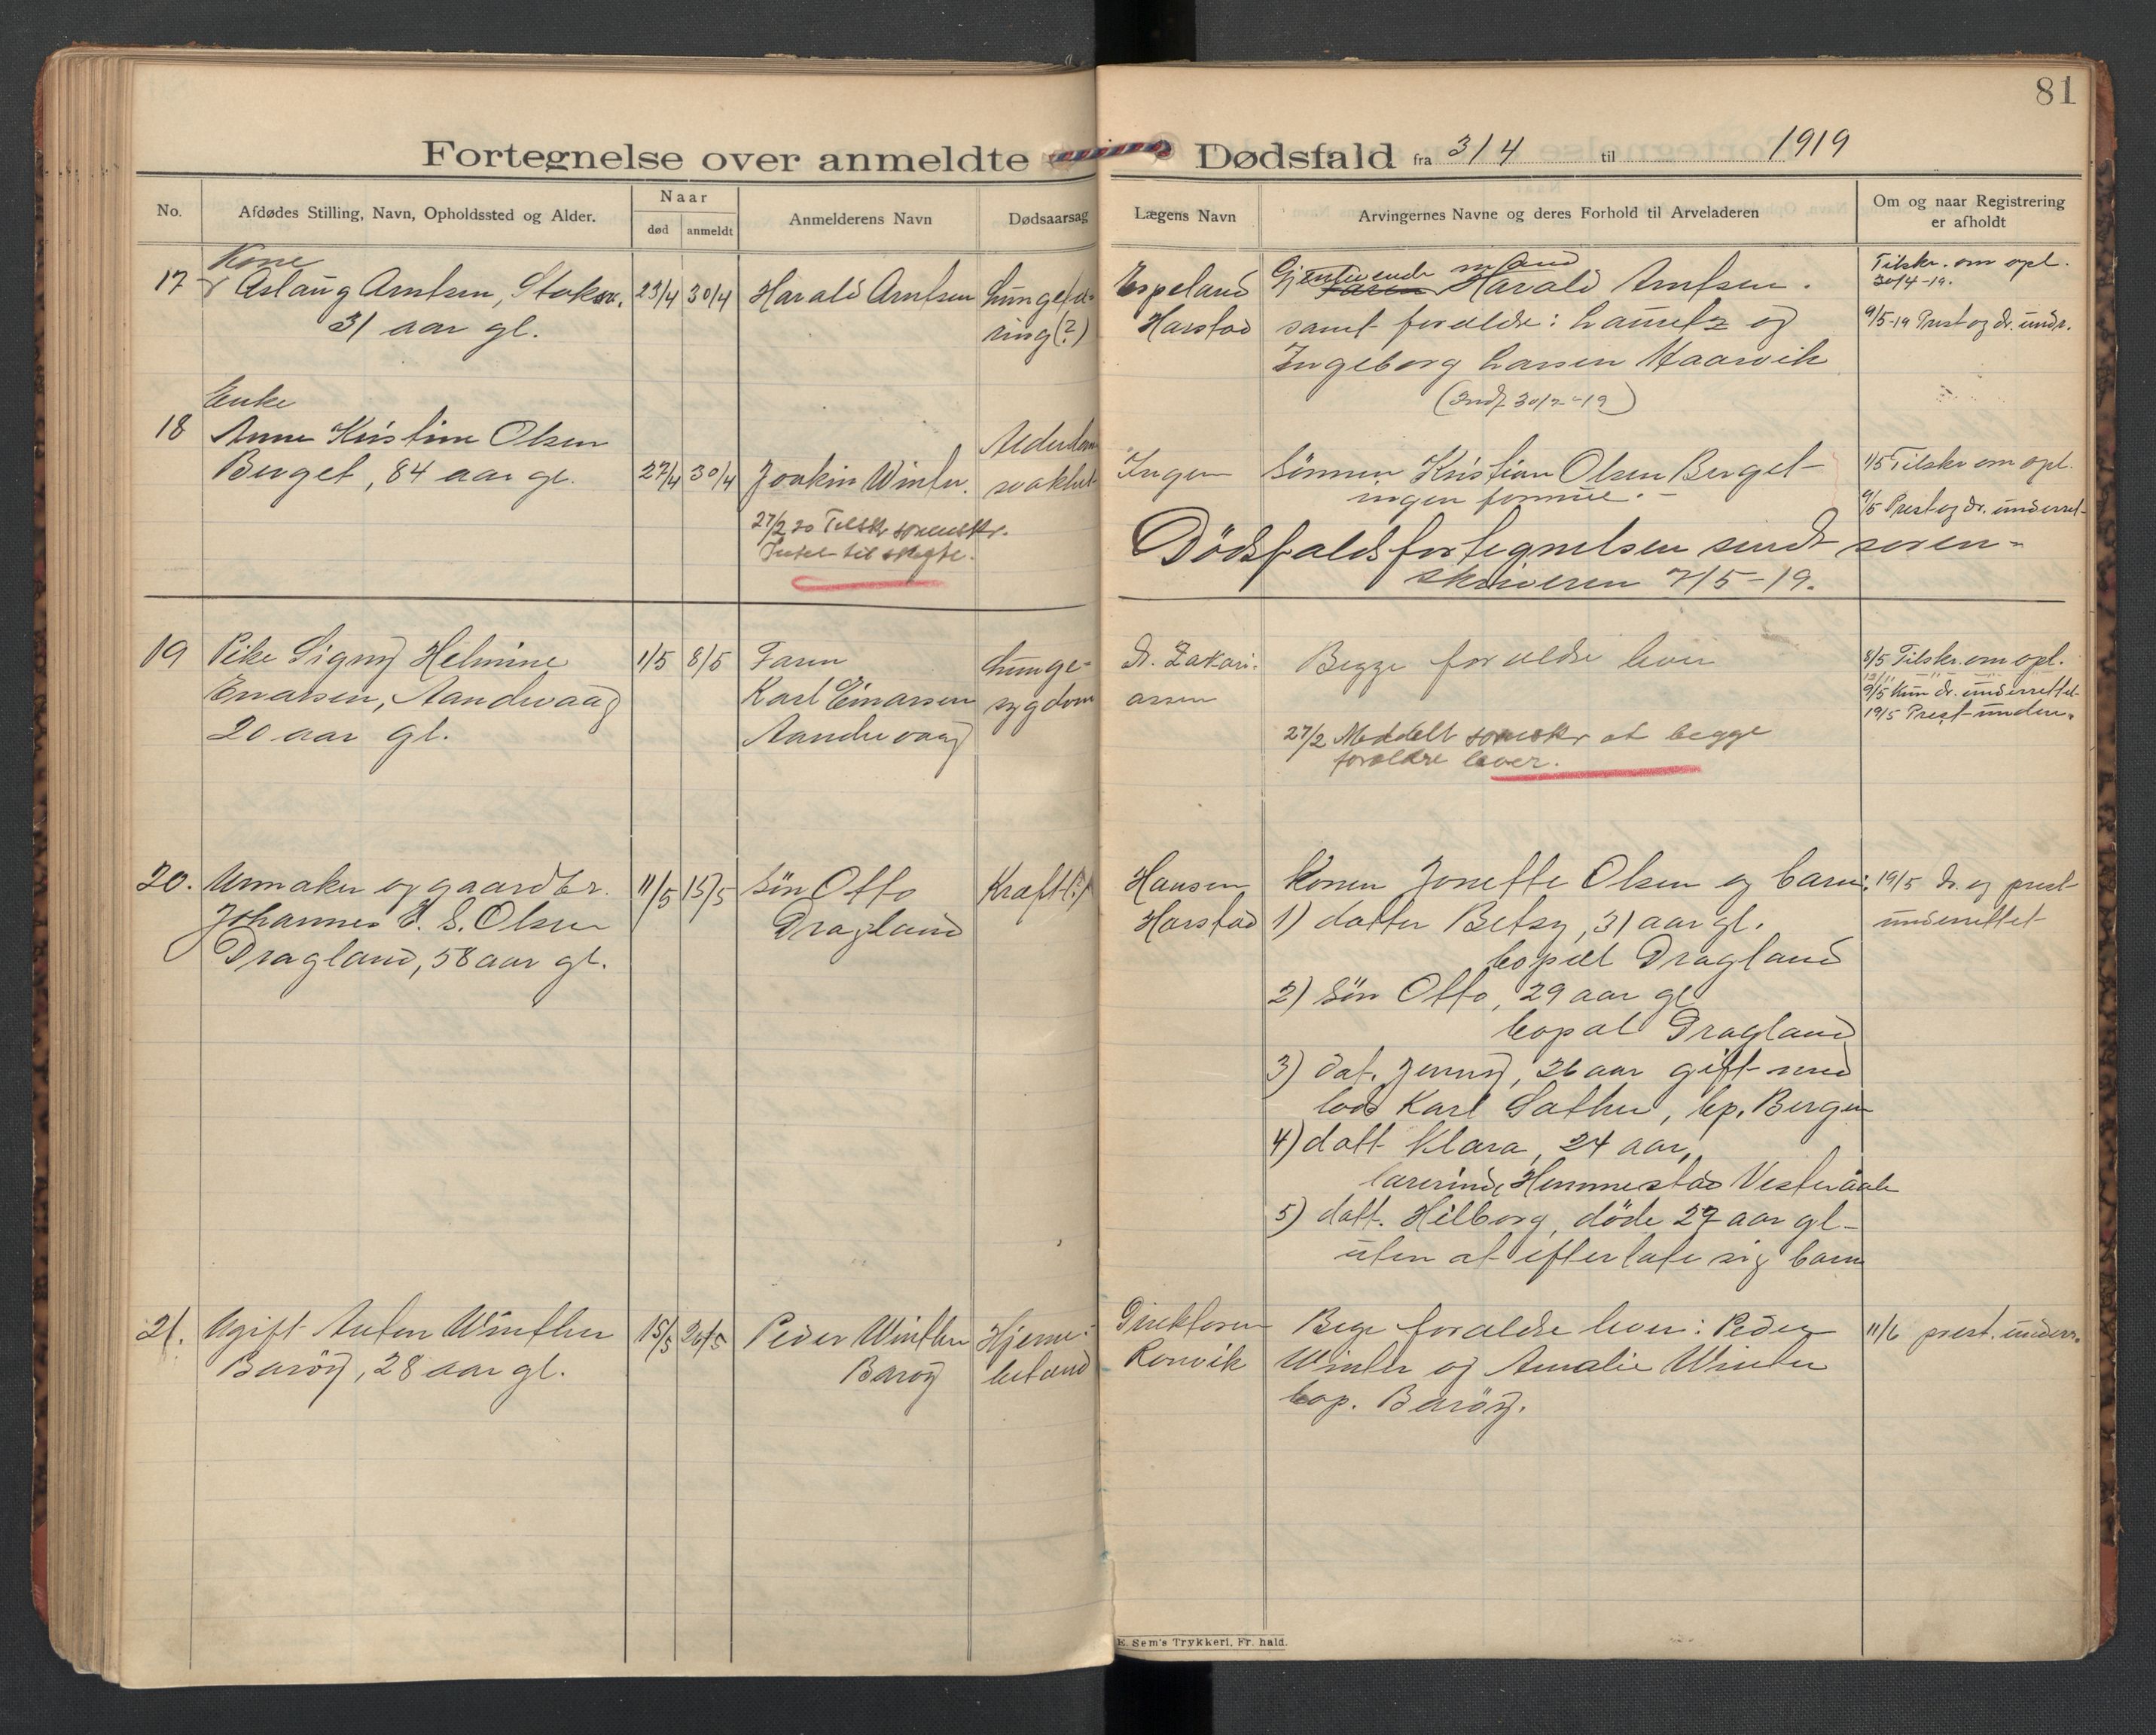 81
Fortegnelse over anmeldte Dødsfald fra 3/4 til 1919
No.
Afdødes Stilling, Navn, Opholdssted og Alder.
Naar
død
anmeldt
Anmelderens Navn
Dødsaarsag
Lægens Navn
Arvingernes Navne og deres Forhold til Arveladeren
Om og naar Registrering
er afholdt
Kone
17 Aslaug Arntsen, Stoksv.
31 aar gl.
23/4 30/4
Harald Arntsen
ring(?)
Espeland
Harstad
Gjenlevende mand
Faren Harald Arntsen.
samt foreldre: Lauretz og
Ingeborg Larsen Kaarvik
Tilskr. om opl.
30/4-19.
9/5-19 Prest og dr. undr.
Enke
18 Anne Kristine Olsen
Berget, 84 aar gl.
27/4 30/4
Joakin Winter.
27/2 20 Tilskr sorenskr.
Intet til skifte.
Alderdoms
svakhet
Ingen
Sønnen Kristian Olsen Berget-
ingen formue.-
1/5 Tilskr om opl.
9/5 Prest og dr. underret-
Dødsfaldsfortegnelsen sendt soren-
skriveren 7/5-19.
19 Pike Signy Helmine
Einarsen, Aandervaag
20 aar gl.
1/5 8/5
Faren
Karl Einarsen
Aandervaag
Lunge-
sygdom
dr. Zakari-
assen
Begge foreldre lever
27/2 Meddelt sorenskr at begge
foreldre lever.
8/5 Tilskr. om opl.
9/5 Kun dr. underrettet
19/5 Prest underr.
20. Urmaker og gaardbr.
Johannes E. S. Olsen
Dragland, 58 aar gl.
11/5 15/5
Søn Otto
Dragland
Kræft(?)
Hansen
Harstad
Konen Jonette Olsen og barn:
1) datter Betsy, 31 aar gl.
bopæl Dragland
2) Søn Otto, 29 aar gl
bopæl Dragland
3) dat. Jenny, 26 aar gift med
lods Karl Sæther, bp. Bergen
4) datt Klara, 24 aar,
lærerinde Hemmestad Vesteraalen
5) datt. Hilborg, døde 27 aar gl-
uten at efterlate sig barn
19/5 dr. og prest
underrettet
21. Ugift Anton Winther
Barøy, 28 aar gl.
15/5 26/5
Peder Winther
Barøy
Hjerne-
Direktøren
Rønvik
Bege foreldre lever: Peder
Winter og Amalie Winter
bop. Barøy.
11/6 prest. underr.
E. Sem's Trykkeri, Fr. hald.